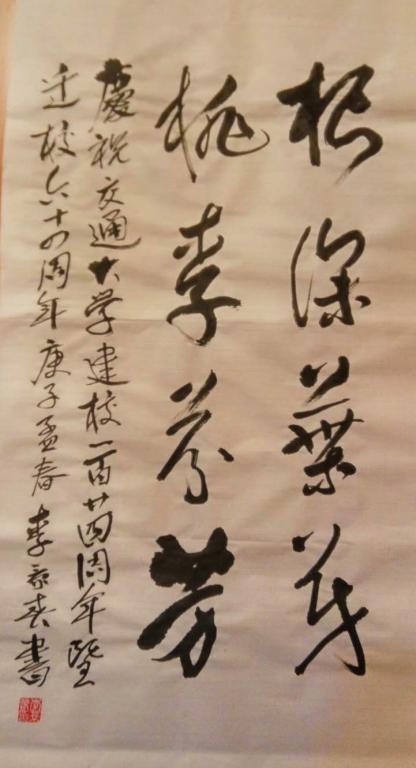 根深葉茂
桃李芬芳
慶祝交通大学建校一百廿四周年暨
迁校六十四周年庚子孟春 李書